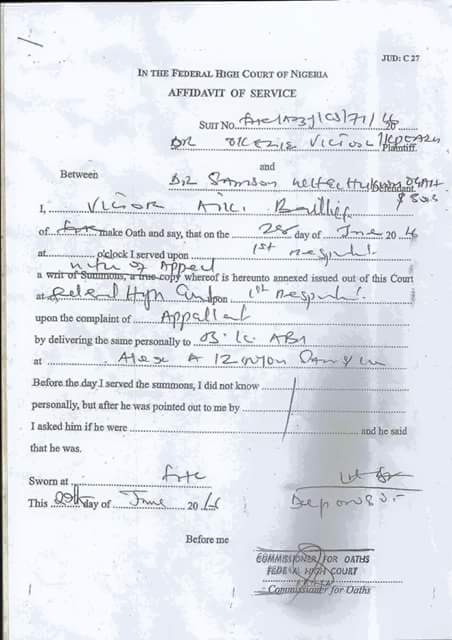 JUD: C 27
IN THE FEDERAL HIGH COURT OF NIGERIA
AFFIDAVIT OF SERVICE
SUIT No. 20
DR OKEZIE VICTOR IKPEAZU Plaintiff.
and
Between
DR SAMSON Defendant.
& 3 ORS
I, VICTOR Bailiff
of make Oath and say, that on the 28 day of June 2016
at o'clock I served upon 1st Respondent
Notice of Appeal
a writ of Summons, a true copy whereof is hereunto annexed issued out of this Court
at Federal High Court upon 1st Respondent
upon the complaint of Appellant
by delivering the same personally to
at Alex A Izinyon
Before the day I served the summons, I did not know
personally, but after he was pointed out to me by
I asked him if he were and he said
that he was.
Sworn at
This 29th day of June 2016
Deponent
Before me
COMMISSIONER FOR OATHS
FEDERAL HIGH COURT
Commissioner for Oaths